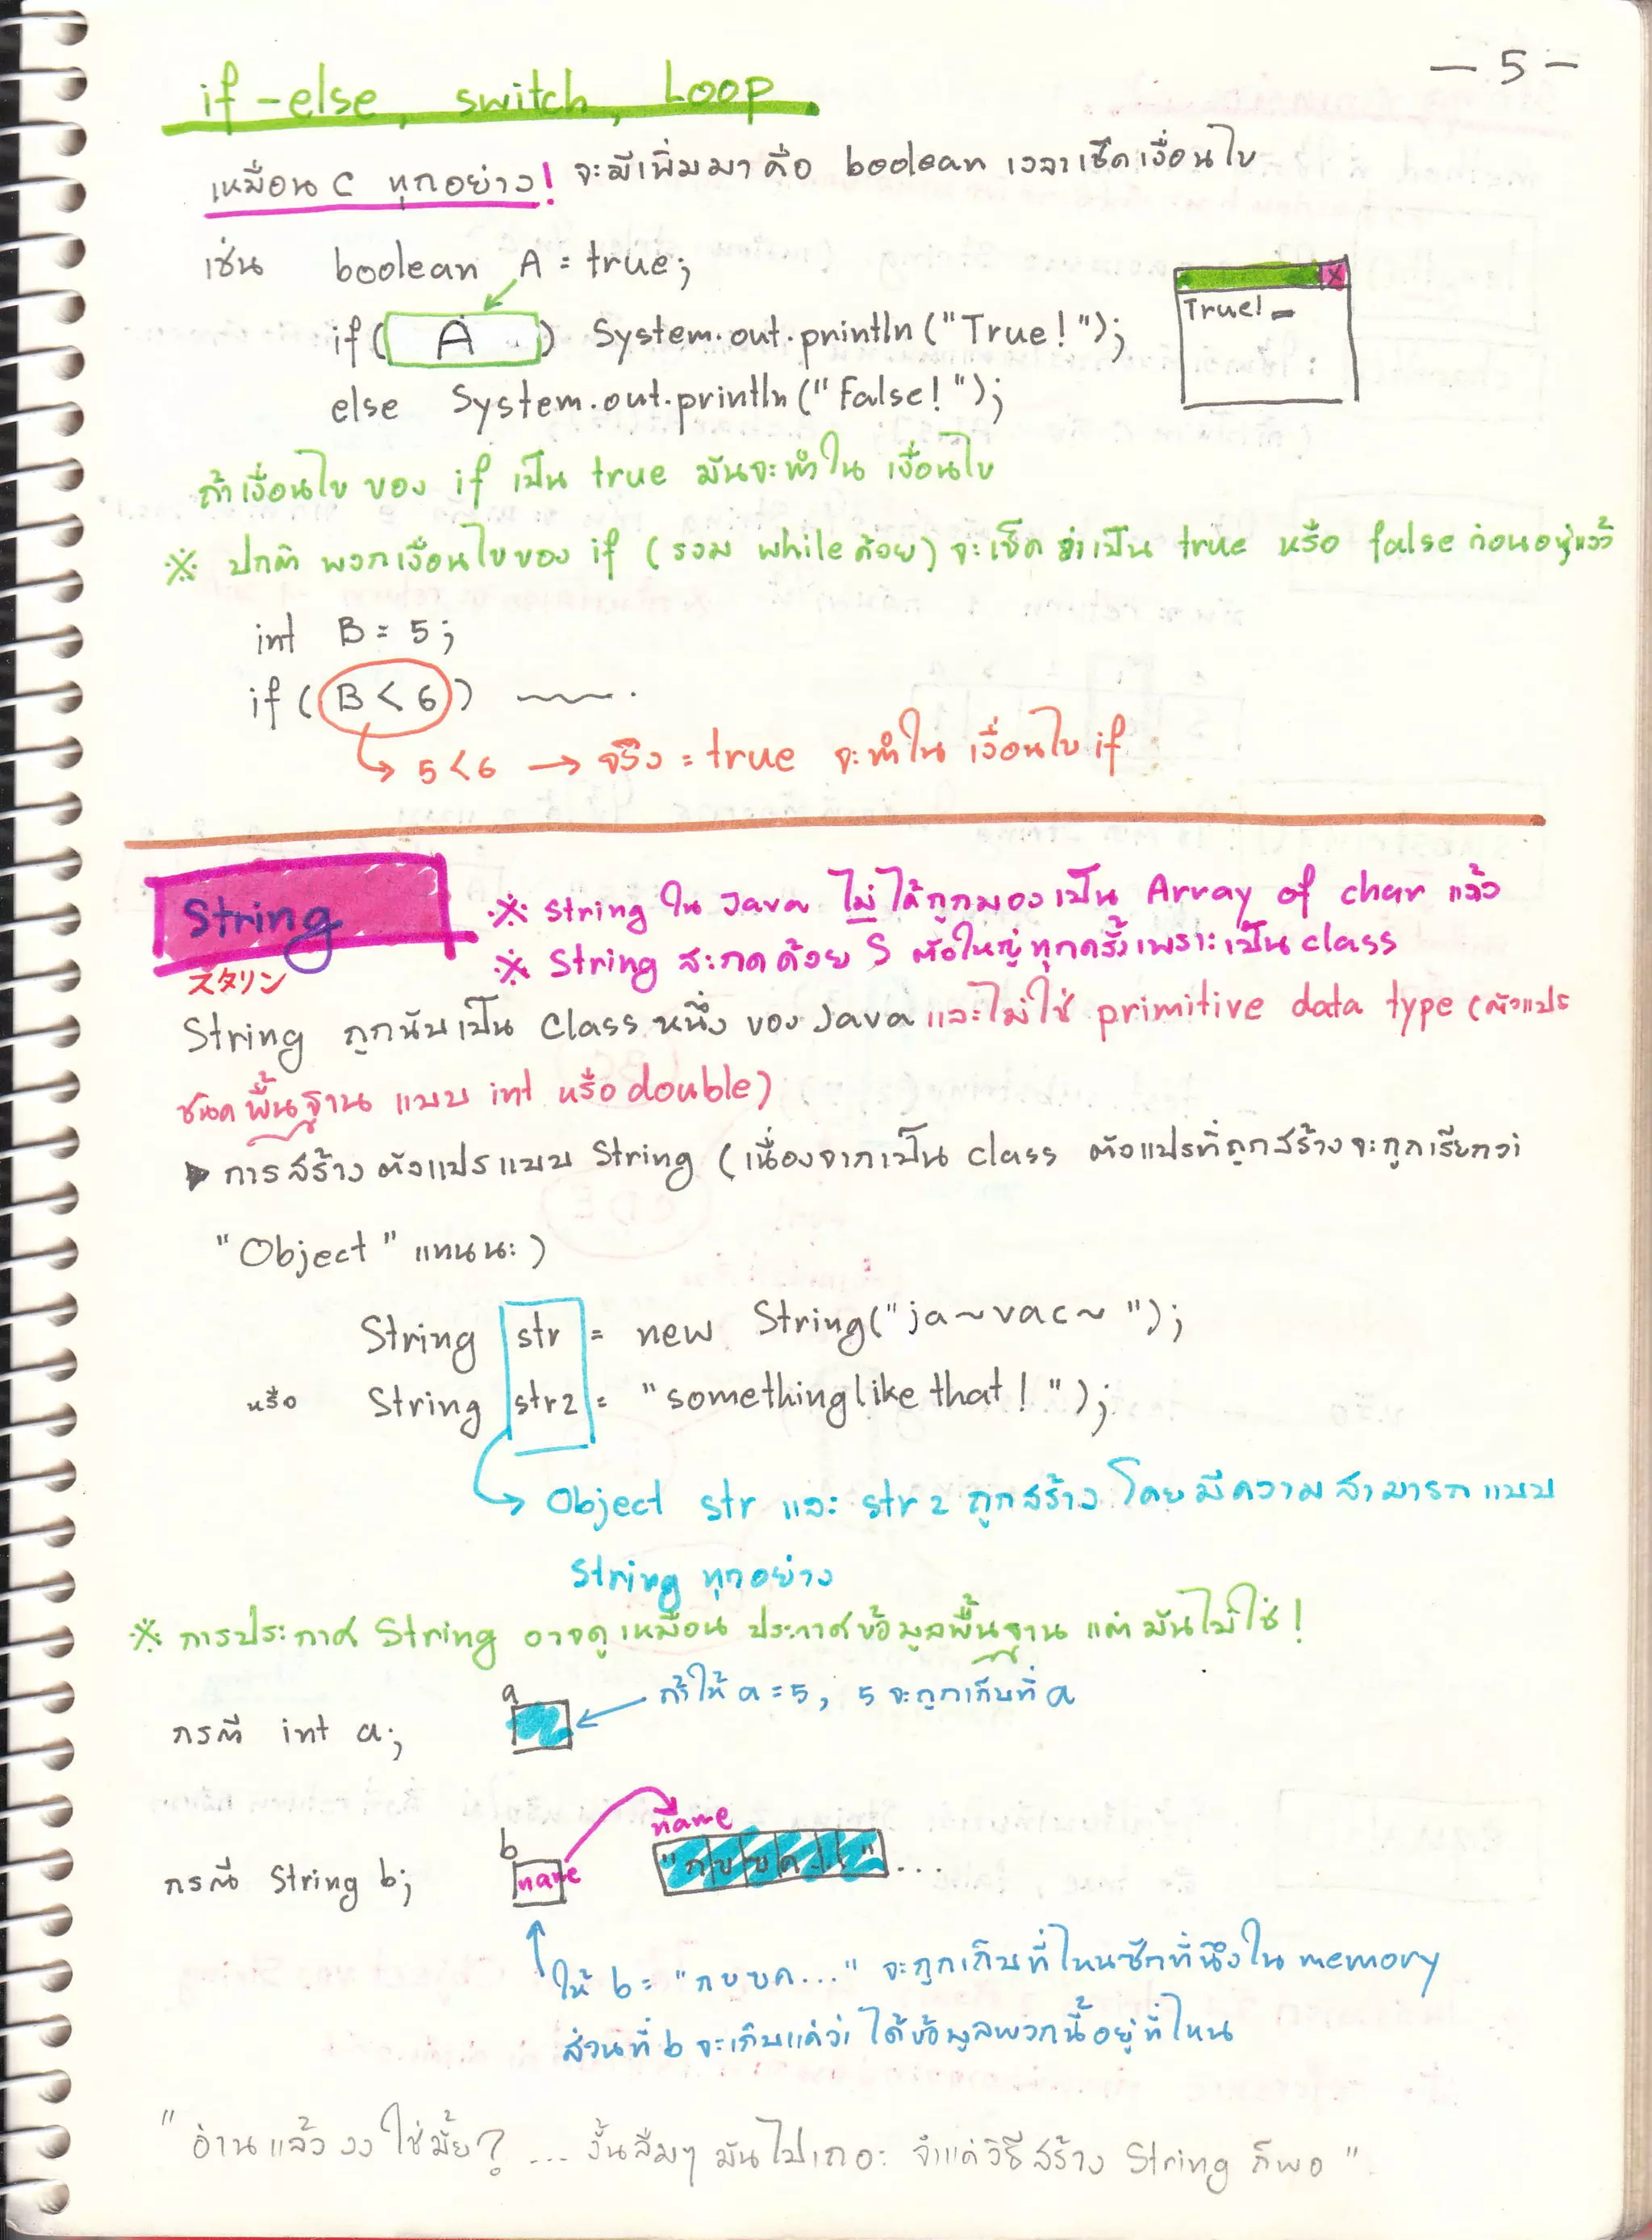 - 5 -
if-else, switch, Loop
เหมือน C ทุกอย่าง! จะมีเพิ่มมาคือ boolean เวลาเช็คเงื่อนไข
เช่น boolean A = true;
if ( A ) System.out.println("True!");
True!
else System.out.println("False!");
ถ้าเงื่อนไขของ if เป็น true มันจะทำใน เงื่อนไข
※ ปกติ พวกเงื่อนไขของ if (รวม while ด้วย) จะเช็ค ว่าเป็น true หรือ false ก่อนอยู่แล้ว
int B = 5;
if ( B < 6 )
5 < 6 → จริง = true จะทำใน เงื่อนไข if
String
※ String ใน Java ไม่ได้ถูกมองเป็น Array of char แล้ว
※ String สะกดด้วย S ตัวใหญ่ทุกครั้งเพราะเป็น class
スタリン
String ถูกนับเป็น Class หนึ่ง ของ Java และไม่ใช่ primitive data type (ตัวแปร
ชนิดพื้นฐาน แบบ int หรือ double)
▶ การสร้าง ตัวแปรแบบ String (เนื่องจากเป็น class ตัวแปรที่ถูกสร้างจะถูกเรียกว่า
"Object" แทนนะ)
String str = new String("ja~vac~");
หรือ String str2 = "something like that!");
Object str และ str2 ถูกสร้าง โดยมีความสามารถแบบ
String ทุกอย่าง
※ การประกาศ String อาจดูเหมือน ประกาศข้อมูลพื้นฐาน แต่มันไม่ใช่!
a
ถ้าให้ a = 5, 5 จะถูกเก็บที่ a
กรณี int a;
name
b
กรณี String b; name "กขฃค.." ...
ให้ b = "กขฃค..." จะถูกเก็บที่ไหนซักที่นึงใน memory
ส่วนที่ b จะเก็บแค่ว่า ได้ข้อมูลพวกนี้อยู่ที่ไหน
"อ่านแล้ว งง ใช่มั้ย? ... งั้นลืมๆ มันไปเถอะ จำแค่วิธีสร้าง String ก็พอ"